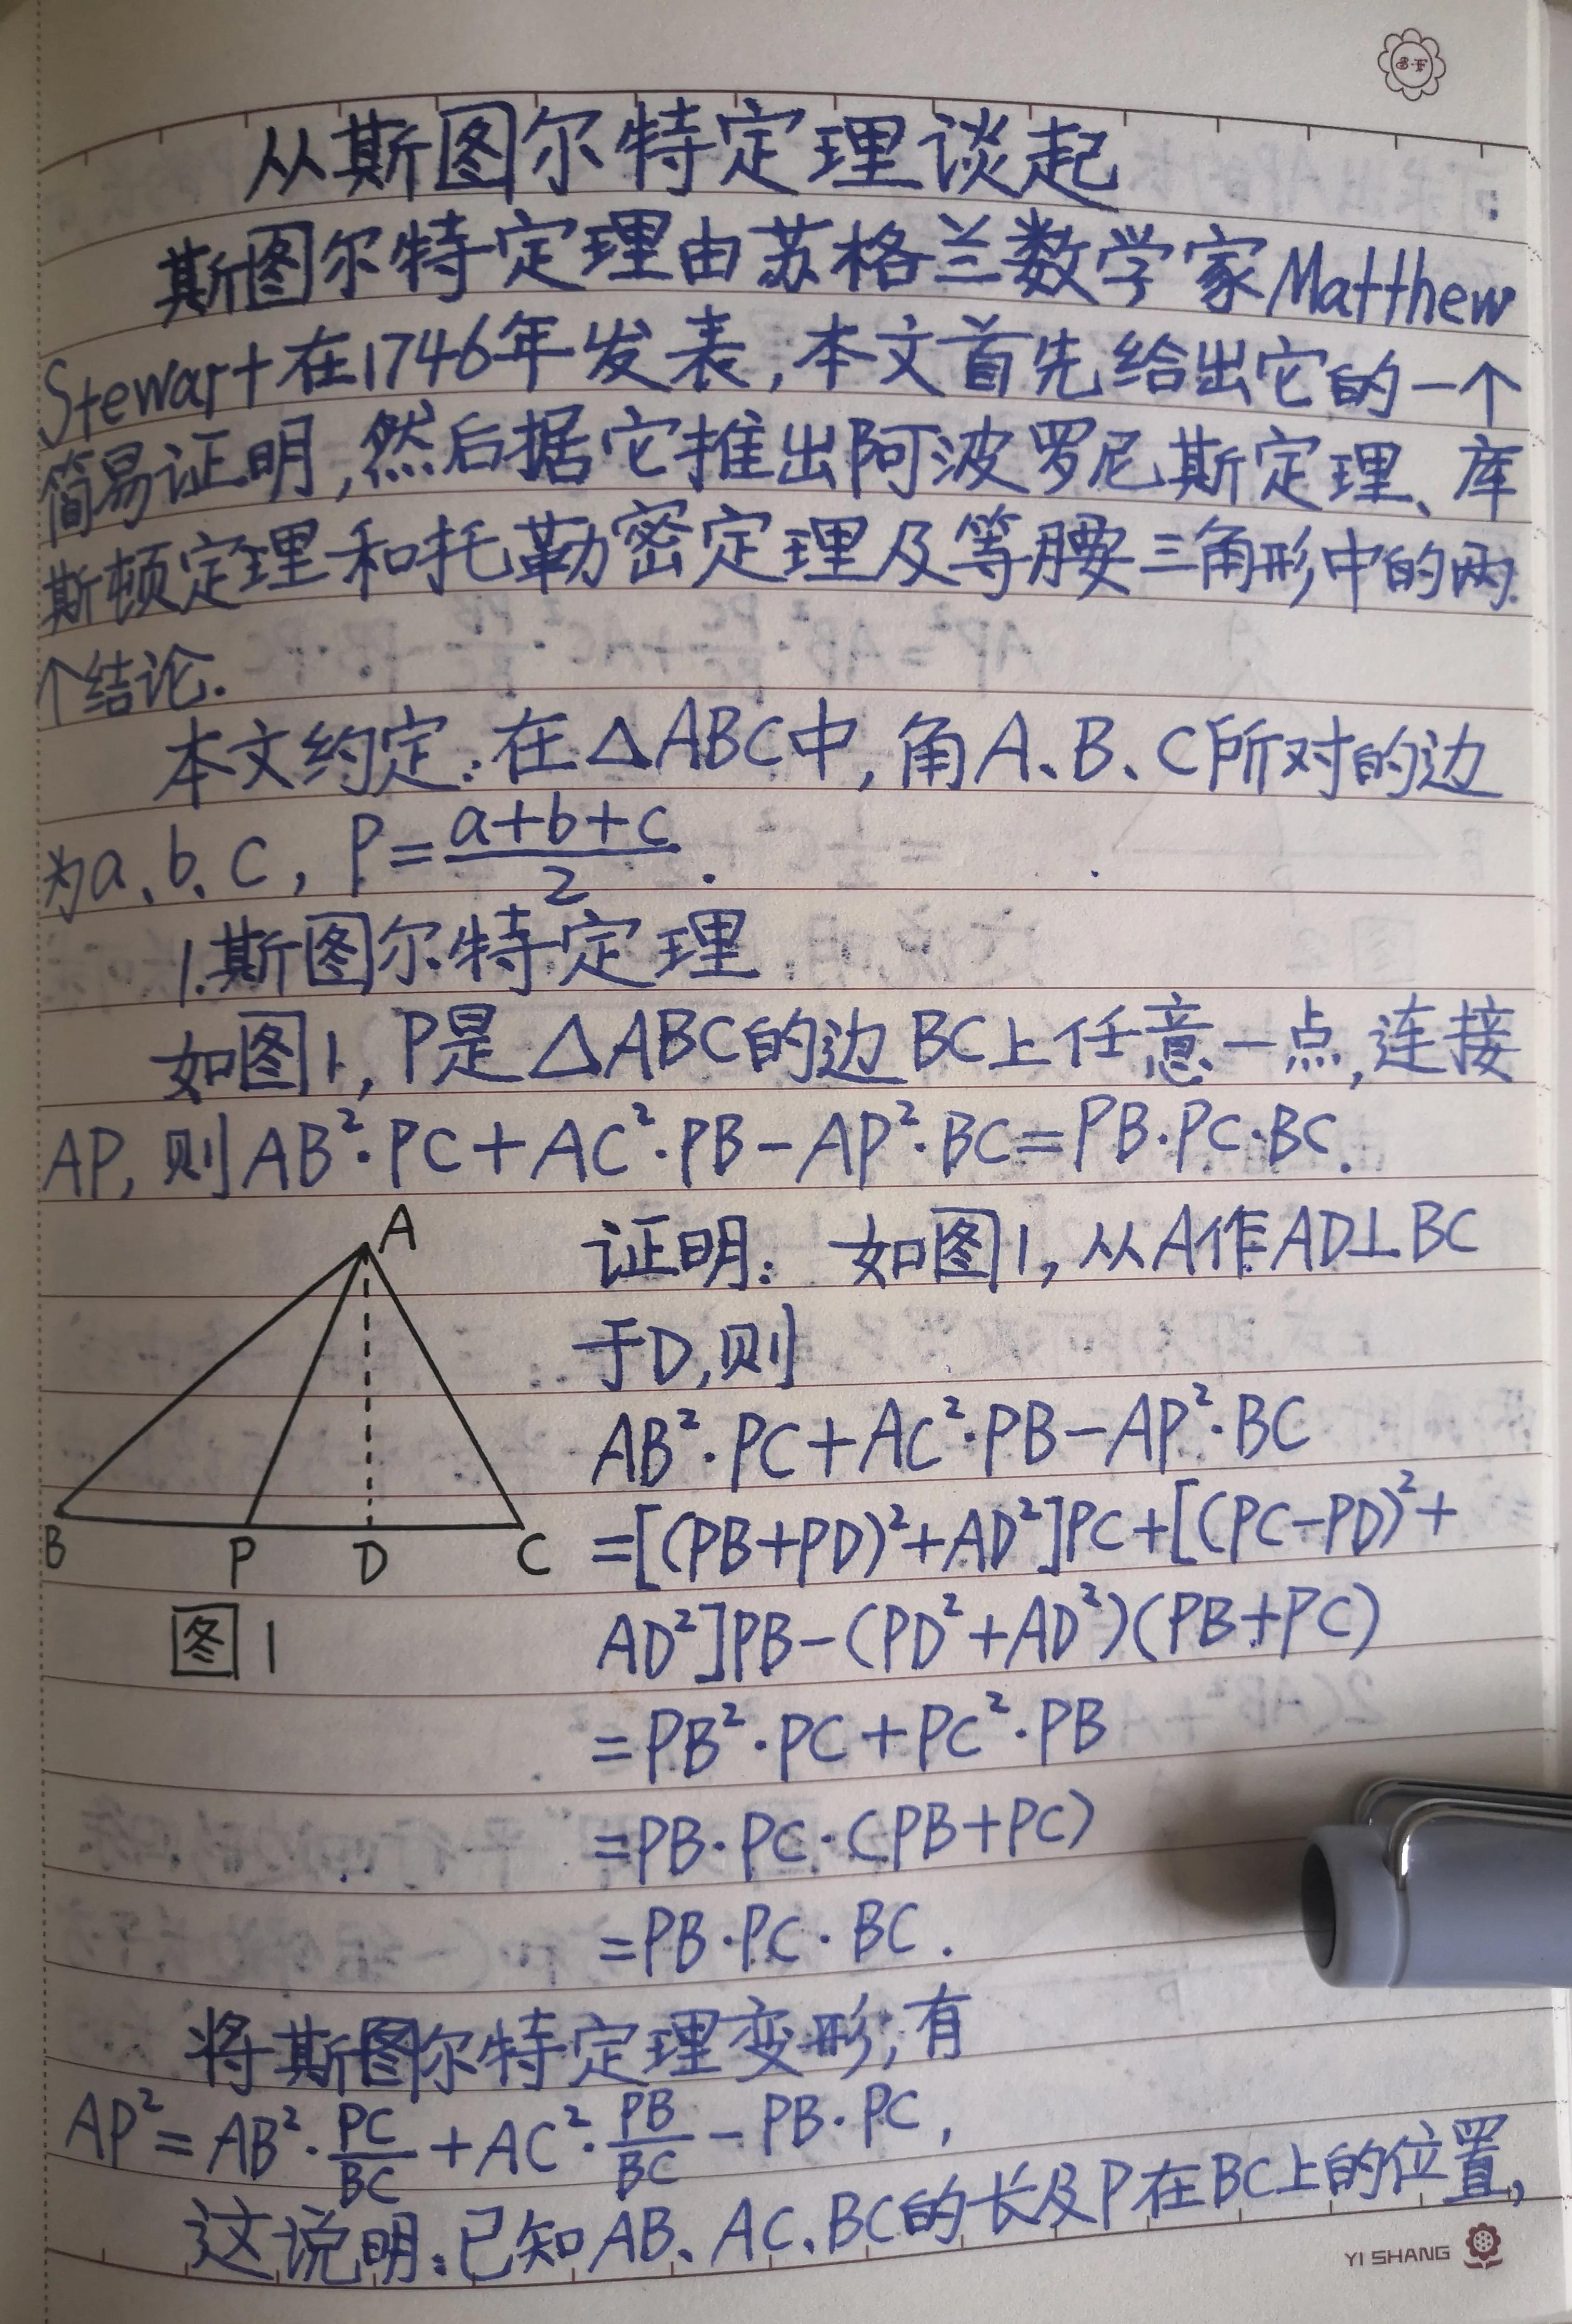 从斯图尔特定理谈起
斯图尔特定理由苏格兰数学家Matthew
Stewart在1746年发表,本文首先给出它的一个
简易证明,然后据它推出阿波罗尼斯定理、库
斯顿定理和托勒密定理及等腰三角形中的两
个结论.
本文约定:在△ABC中,角A、B、C所对的边
为a、b、c, P=\frac{a+b+c}{2}.
1.斯图尔特定理
如图1,P是△ABC的边BC上任意一点,连接
AP,则AB²·PC+AC²·PB-AP²·BC=PB·PC·BC.
证明: 如图1,从A作AD⊥BC
于D,则
AB²·PC+AC²·PB-AP²·BC
=[(PB+PD)²+AD²]PC+[(PC-PD)²+
AD²]PB-(PD²+AD²)(PB+PC)
=PB²·PC+PC²·PB
=PB·PC·(PB+PC)
=PB·PC·BC.
A
B P D C
图1
将斯图尔特定理变形,有
AP²=AB²·\frac{PC}{BC}+AC²·\frac{PB}{BC}-PB·PC,
这说明:已知AB、AC、BC的长及P在BC上的位置,
YI SHANG